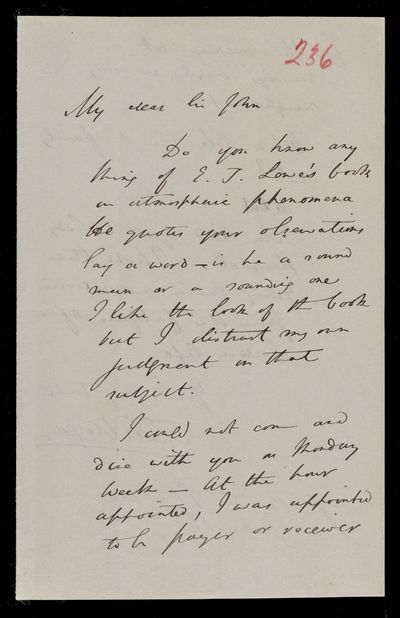 236
My dear Sir John
Do you know any
thing of E. J. Lowe's book
on atmospheric phenomena
He quotes your observations
Say a word – is he a sound
man or a sounding one
I like the look of the book
but I distrust my own
judgment on that
subject.
I could not come and
dine with you on Monday
week – At the hour
appointed, I was appointed
to be payer or receiver